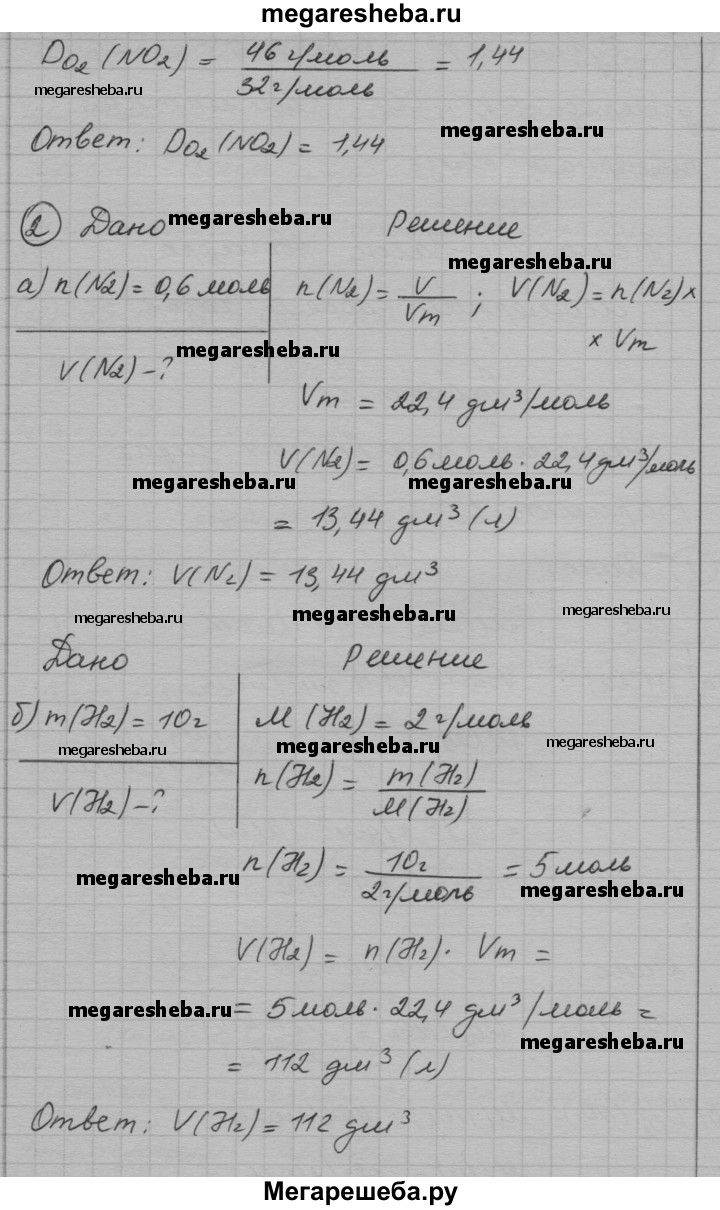 megaresheba.ru
D_O2 (NO2) = 46 г/моль / 32 г/моль = 1,44
megaresheba.ru
megaresheba.ru
Ответ: D_O2 (NO2) = 1,44
② Дано megaresheba.ru Решение
megaresheba.ru
а) n(N2) = 0,6 моль n(N2) = V / Vm ; V(N2) = n(N2) ×
× Vm
megaresheba.ru
V(N2) - ?
Vm = 22,4 дм³/моль
V(N2) = 0,6 моль · 22,4 дм³/моль
megaresheba.ru megaresheba.ru
= 13,44 дм³ (л)
Ответ: V(N2) = 13,44 дм³
megaresheba.ru megaresheba.ru megaresheba.ru
Дано Решение
б) m(H2) = 10 г M (H2) = 2 г/моль
megaresheba.ru megaresheba.ru megaresheba.ru
V(H2) - ? n(H2) = m(H2) / M(H2)
n(H2) = 10 г / 2 г/моль = 5 моль
megaresheba.ru megaresheba.ru
V(H2) = n(H2) · Vm =
megaresheba.ru = 5 моль · 22,4 дм³/моль =
megaresheba.ru
= 112 дм³ (л)
Ответ: V(H2) = 112 дм³
Мегарешеба.ру